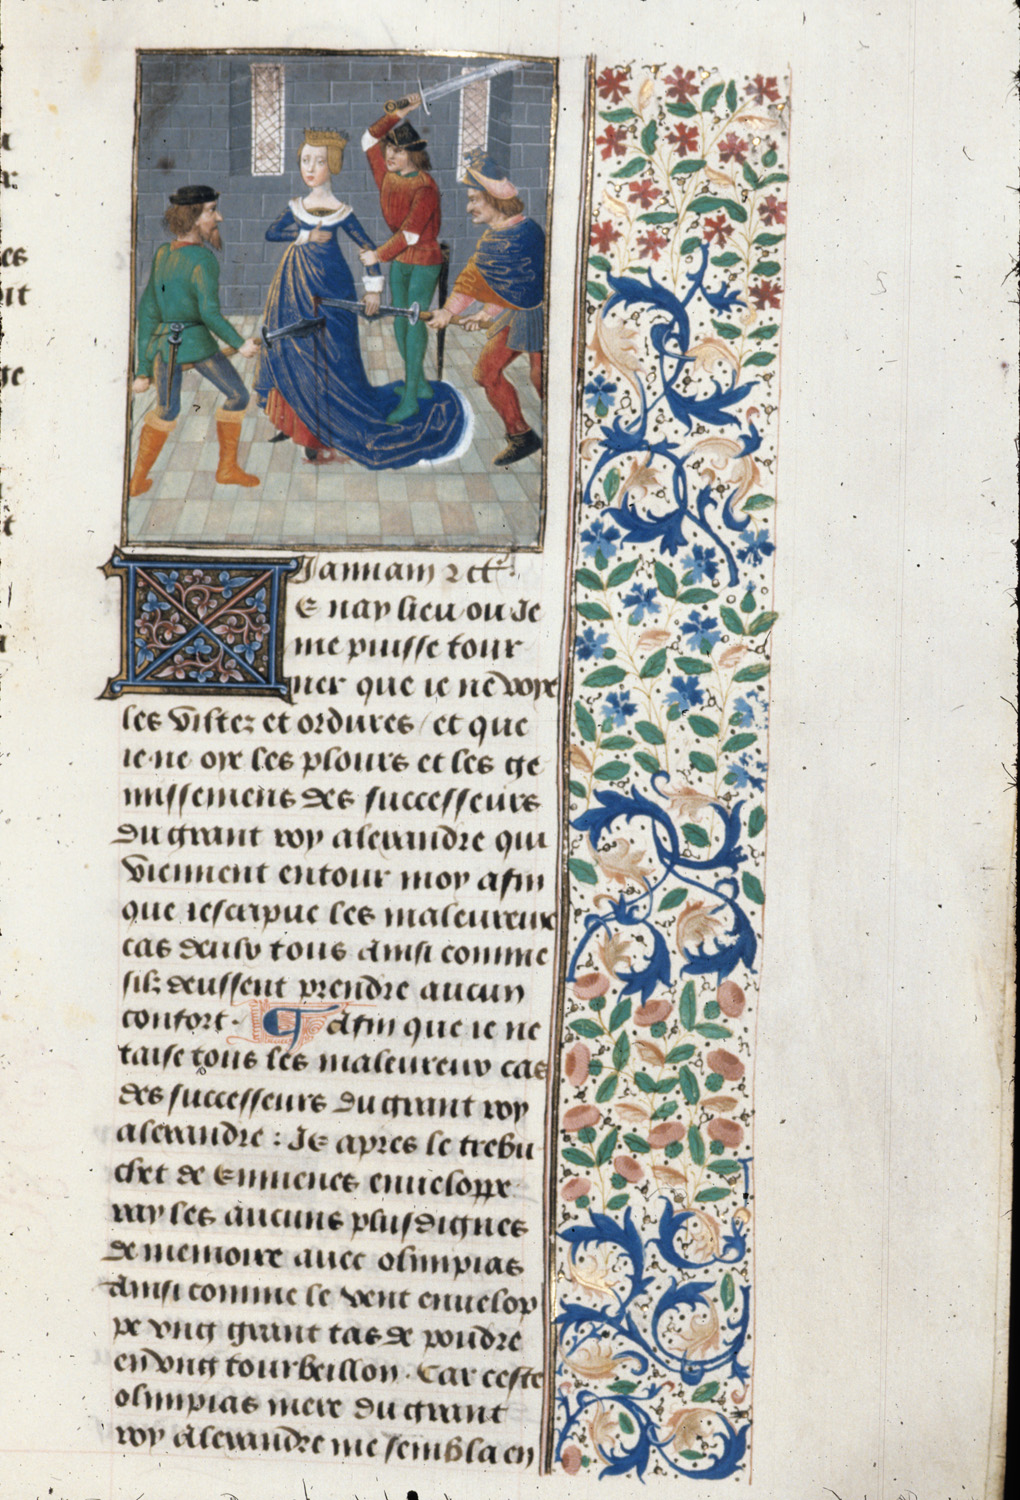 Jamiam ⁊ cet̃.
E nay lieu ou Je
me puisse tour
ner que ie ne voye
les viltez et ordures / et que
ie ne oye les plours et les ge
missemens des successeurs
du grant roy alexandre qui
viennent entour moy afin
que iescripue les maleureux
cas deulx tous Ainsi comme
silz deussent prendre aucun
confort. Afin que ie ne
taise tous les maleureux cas
des successeurs du grant roy
alexandre : Je apres le trebu
chet de Eumenes enueloppe
ray les aucuns plus dignes
de memoire auec olimpias
Ainsi comme le vent enuelop
pe vng grant tas de poudre
en vng tourbeillon. Car ceste
olimpias mere du grant
roy Alexandre me sembla en